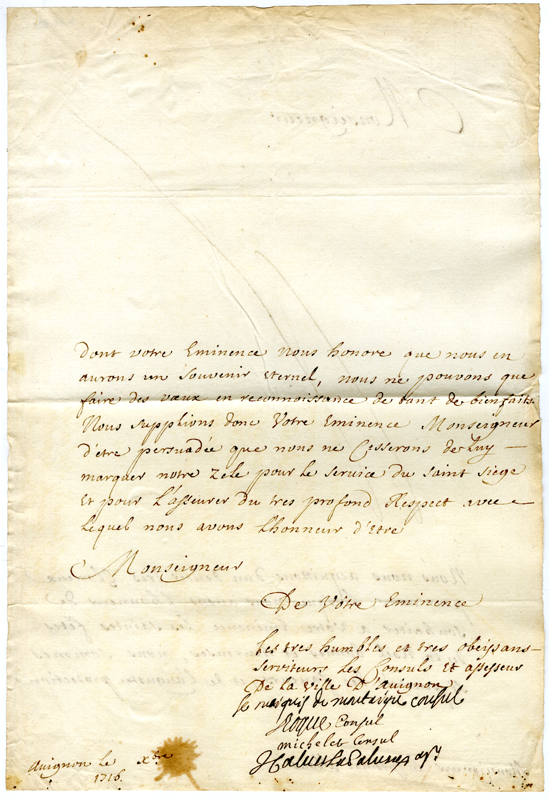 dont votre Eminence nous honore que nous en
aurons un souvenir eternel, nous ne pouvons que
faire des vœux en reconnoissance de tant de bienfaits.
Nous supplions donc Votre Eminence Monseigneur
d'être persuadée que nous ne Cesserons de Luy
marquer notre Zele pour le service du saint siege
Et pour L'asseurer du tres profond Respect avec
Lequel nous avons L'honneur d'Etre
Monseigneur
De Vôtre Eminence
Les tres humbles et tres obeissans
serviteurs Les Consuls Et assesseur
De la Ville D'avignon
Le marquis de consul
Roque Consul
michelet Consul
Avignon le Xbre
1716.